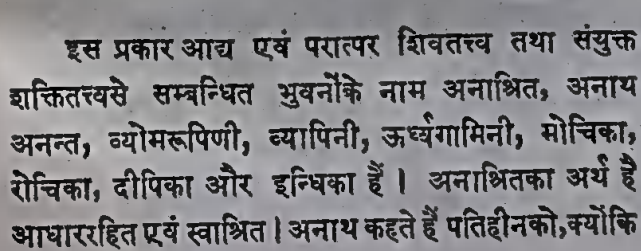 इस प्रकार आद्य एवं परात्पर शिवतत्त्व तथा संयुक्त
शक्तितत्त्वसे सम्बन्धित भुवनोंके नाम अनाश्रित, अनाथ
अनन्त, व्योमरूपिणी, व्यापिनी, ऊर्ध्वगामिनी, मोचिका,
रोचिका, दीपिका और इन्धिका हैं। अनाश्रितका अर्थ है
आधाररहित एवं स्वाश्रित। अनाथ कहते हैं पतिहीनको,क्योंकि